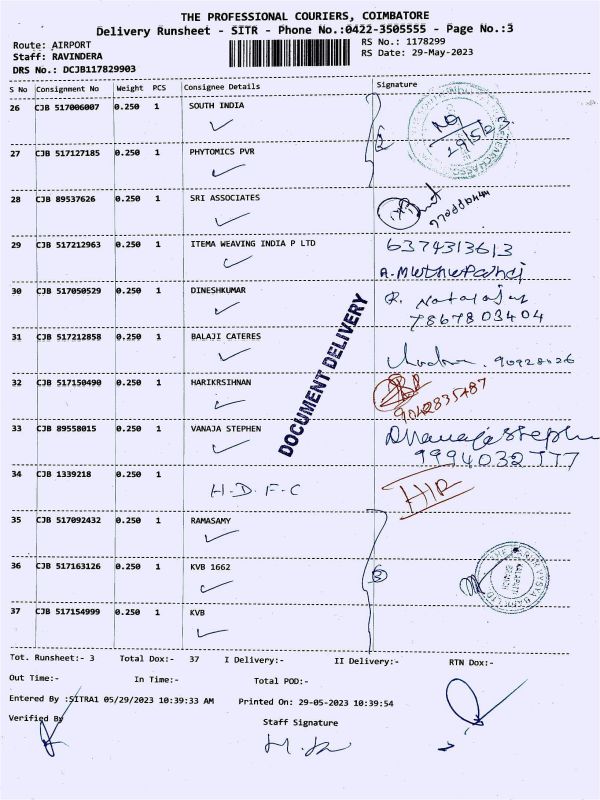 THE PROFESSIONAL COURIERS, COIMBATORE
Delivery Runsheet - SITR - Phone No.:0422-3505555 - Page No.:3
Route: AIRPORT
RS No.: 1178299
Staff: RAVINDERA
RS Date: 29-May-2023
DRS No.: DCJB117829903
S No Consignment No Weight PCS Consignee Details Signature
26 CJB 517006007 0.250 1 SOUTH INDIA
27 CJB 517127185 0.250 1 PHYTOMICS PVR
28 CJB 89537626 0.250 1 SRI ASSOCIATES
29 CJB 517212963 0.250 1 ITEMA WEAVING INDIA P LTD 6374313613
A. Muthupandi
30 CJB 517050529 0.250 1 DINESHKUMAR R. Natarajan
7867803404
31 CJB 517212858 0.250 1 BALAJI CATERES
DOCUMENT DELIVERY
32 CJB 517150490 0.250 1 HARIKRSIHNAN 9042835487
33 CJB 89558015 0.250 1 VANAJA STEPHEN
9994032777
34 CJB 1339218 0.250 1 H.D.F.C
35 CJB 517092432 0.250 1 RAMASAMY
36 CJB 517163126 0.250 1 KVB 1662
37 CJB 517154999 0.250 1 KVB
Tot. Runsheet:- 3 Total Dox:- 37 I Delivery:- II Delivery:- RTN Dox:-
Out Time:- In Time:- Total POD:-
Entered By :SITRA1 05/29/2023 10:39:33 AM Printed On: 29-05-2023 10:39:54
Verified By
Staff Signature